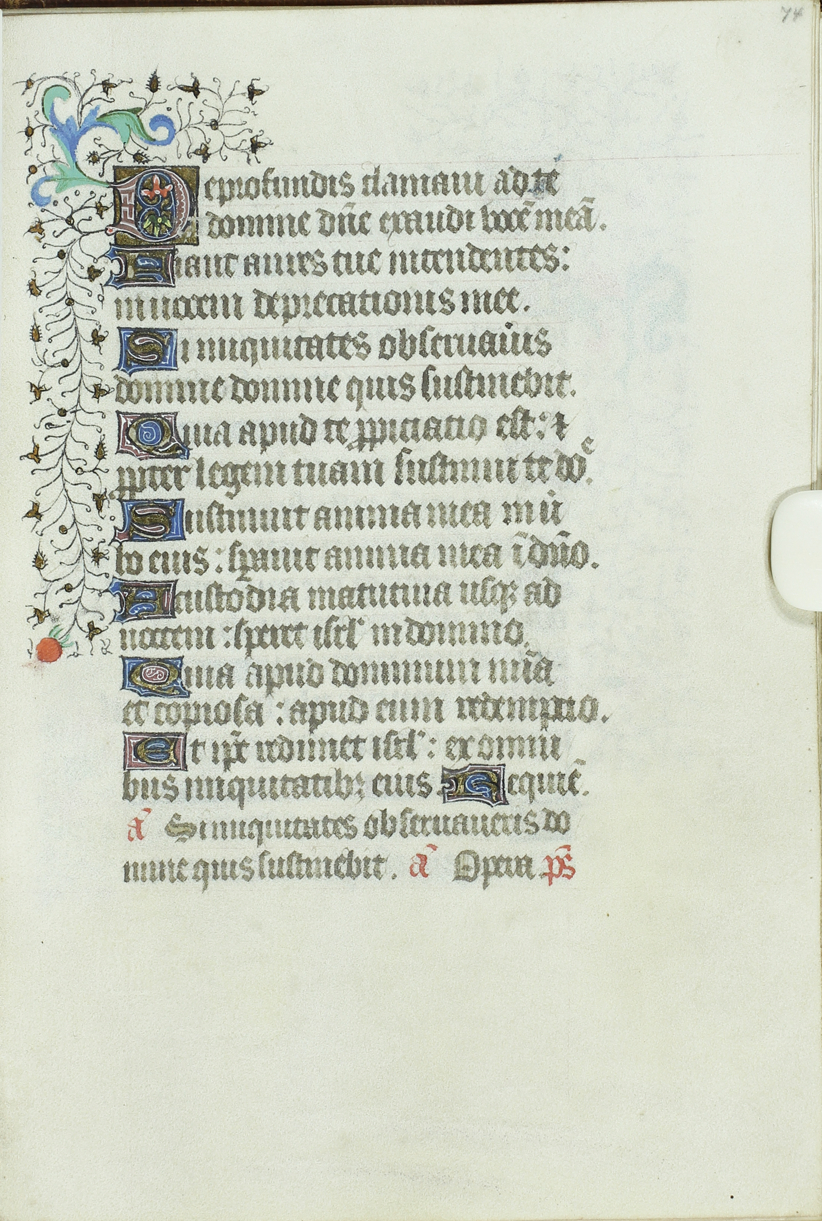 74
De profundis clamaui ad te
domine dñe exaudi vocẽ meã.
Fiant aures tue intendentes:
in uocem deprecationis mee.
Si iniquitates obseruaũis
domine domine quis sustinebit.
Quia apud te ppiciatio est: ⁊
ppter legem tuam sustinui te doᵉ.
Sustinuit anima mea in ũ
bo eius: sperauit anima mea ĩ dño.
A custodia matutina usqꝫ ad
noctem: speret isrl' in domino.
Quia apud dominum mĩa
et copiosa: apud eum redemptio.
Et ipẽ redimet isrl': ex omni
bus iniquitatibꝫ eius. Requiẽ.
ã Si iniquitates obseruaueris do
mine quis sustinebit. ã Opera p̃s